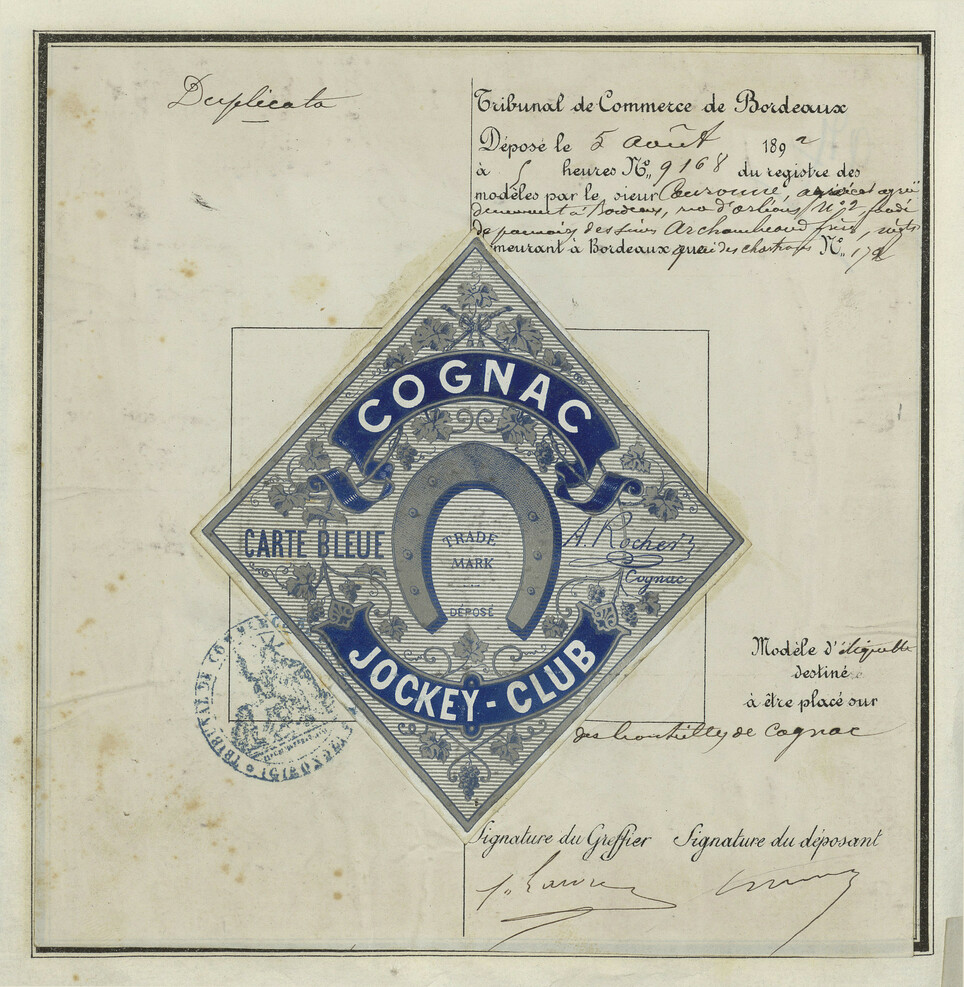 Duplicata
Tribunal de Commerce de Bordeaux
Déposé le 5 août 1892
à 5 heures No. 9168 du registre des
modèles par le sieur Couronne,
à Bordeaux, rue d'orléans, No 2, fondé
de pouvoirs des sieurs Archambeaud frères,
meurant à Bordeaux quai des chartrons No. 172
COGNAC
CARTE BLEUE
TRADE
MARK
DÉPOSÉ
A. Rocher
Cognac
JOCKEY-CLUB
TRIBUNAL DE COMMERCE
Modèle d'étiquette
destiné
à être placé sur
des bouteilles de Cognac
Signature du Greffier Signature du déposant